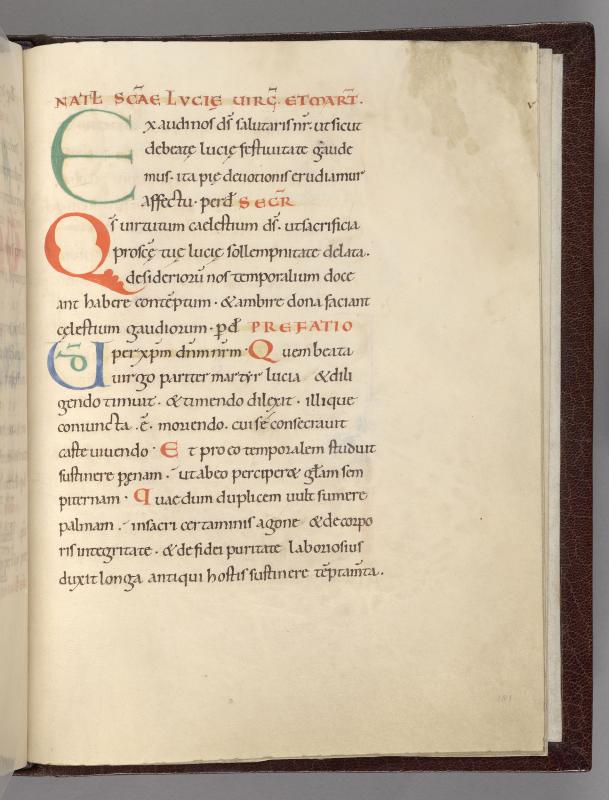 NATL̅ SC̅AE LVCIĘ UIRG̅. ET MART̅.
Exaudi nos d̅s̅ salutaris nr̅. ut sicut
de beatę lucię festiuitate gaude
mus. ita pię deuotionis erudiamur
affectu. per d̅ SECR̅
Qs̅ uirtutum caelestium d̅s̅. ut sacrificia
pro scę̅ tuę lucię sollempnitate delata.
desideriorū nos temporalium doce
ant habere contēptum. & ambire dona faciant
cęlestium gaudiorum. p̲d̅ PREFATIO
UD̅ per xp̅m dn̅m nr̅m. Quem beata
uirgo pariter & martyr lucia & dili
gendo timuit. & timendo dilexit. illique
coniuncta .ē. moriendo. cui se consecrauit
caste uiuendo. Et pro eo temporalem studuit
sustinere pęnam. ut a beo perciper& gl̅am sem
piternam. Quae dum duplicem uult sumere
palmam. in sacri certaminis agone & de corpo
ris integritate. & de fidei puritate laboriosius
duxit longa antiqui hostis sustinere tēptam̅ta.
181